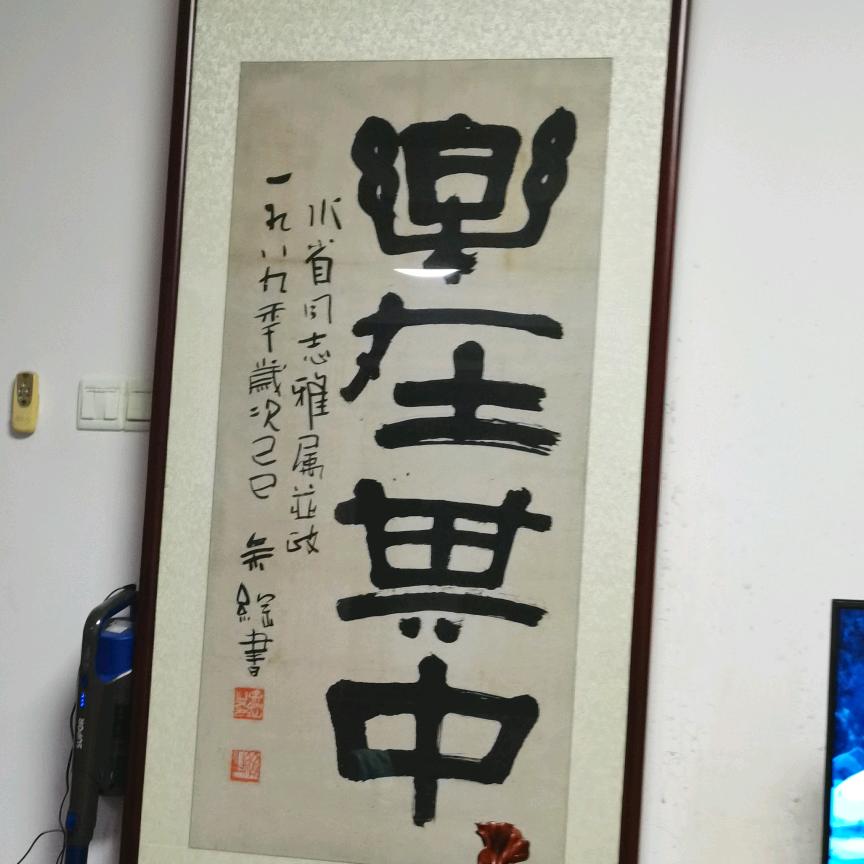 樂在其中
省同志雅属並政
一九八九年歲次己巳
書
SUPOR